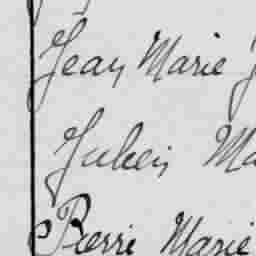 Jean Marie J
Julien Ma
Pierre Marie